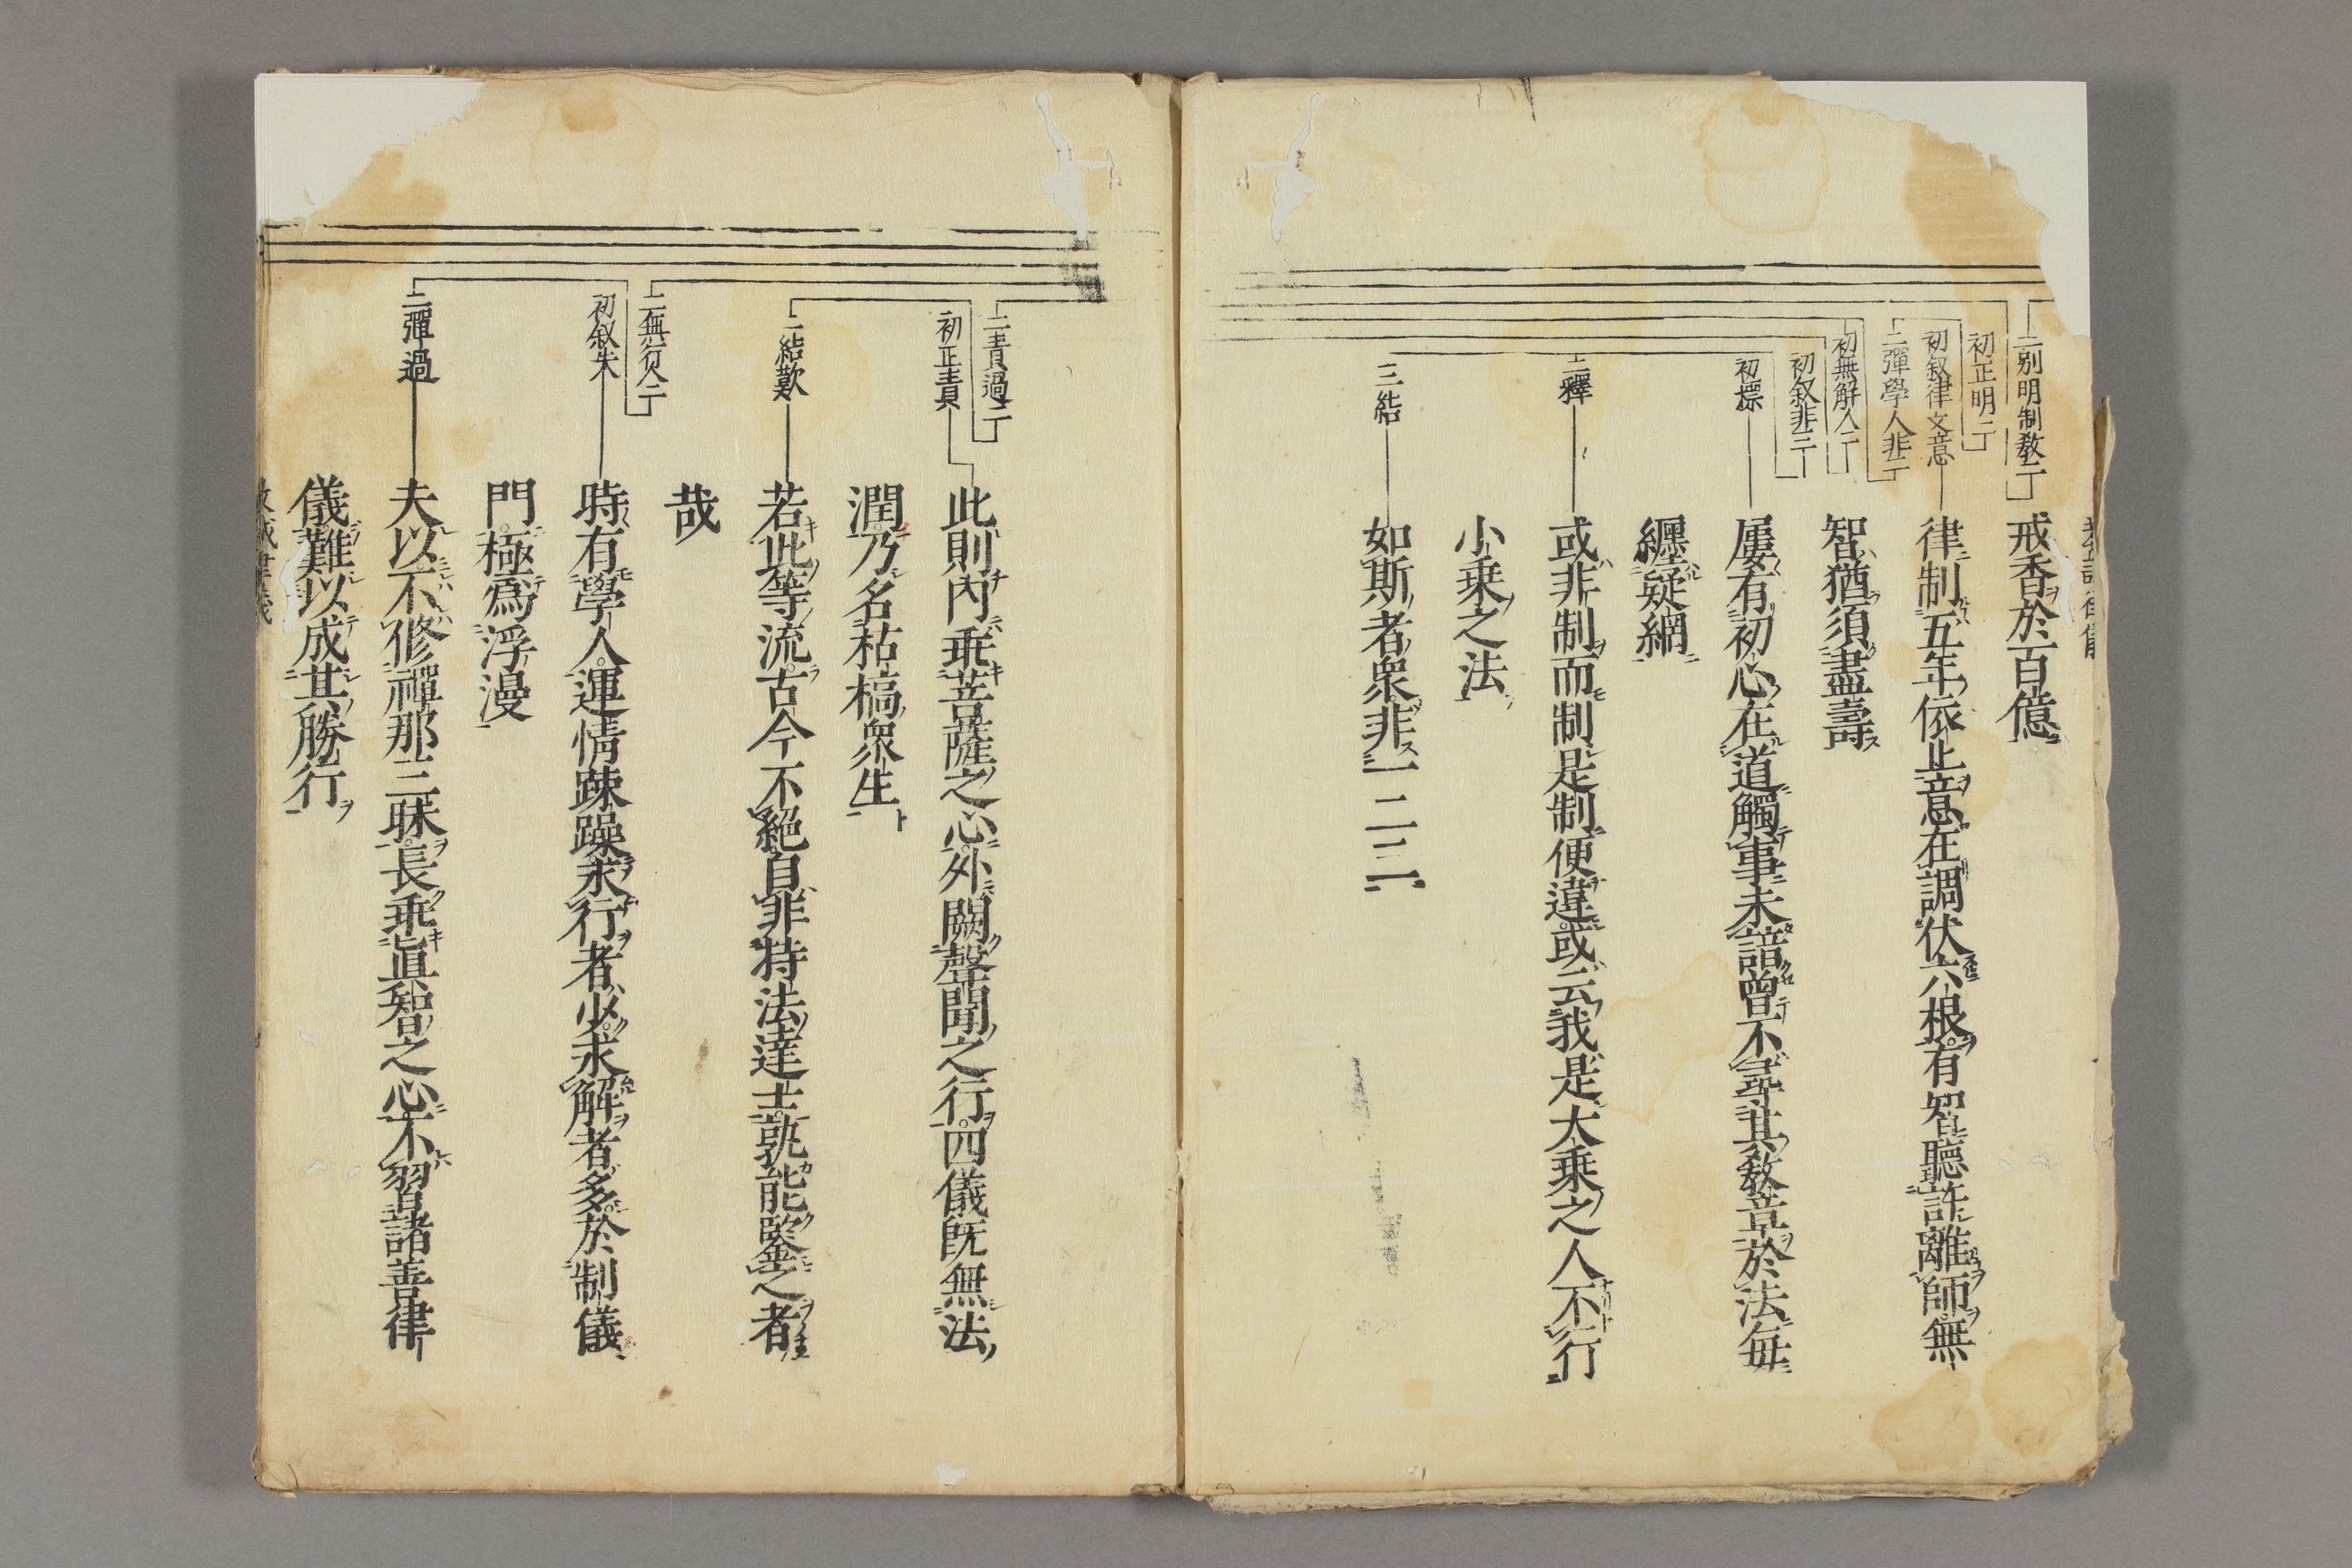 二別明制教二
戒香於百億
初正明二
初叙律文意
律制五年依止意在調伏六根有智聽許離師無
智猶須盡壽
二彈學人非二
初無解人二
初叙非三
初標
屢有初心在道觸事未諳曾不尋其教章於法毎
纒疑網
二釋
或非制而制是制便違或云我是大乗之人不行
小乗之法
三結
如斯者衆非一二三
二責過二
初正責
此則内乖菩薩之心外闕聲聞之行四儀既無法
潤乃名枯槁衆生
二結歎
若此等流古今不絶自非持法達士孰能鑒之者
哉
二無行人二
初叙失
時有學人運情疎躁求行者少求解者多於制儀
門極爲浮漫
二彈過
夫以不修禪那三昧長乖眞智之心不習諸善律
儀難以成其勝行